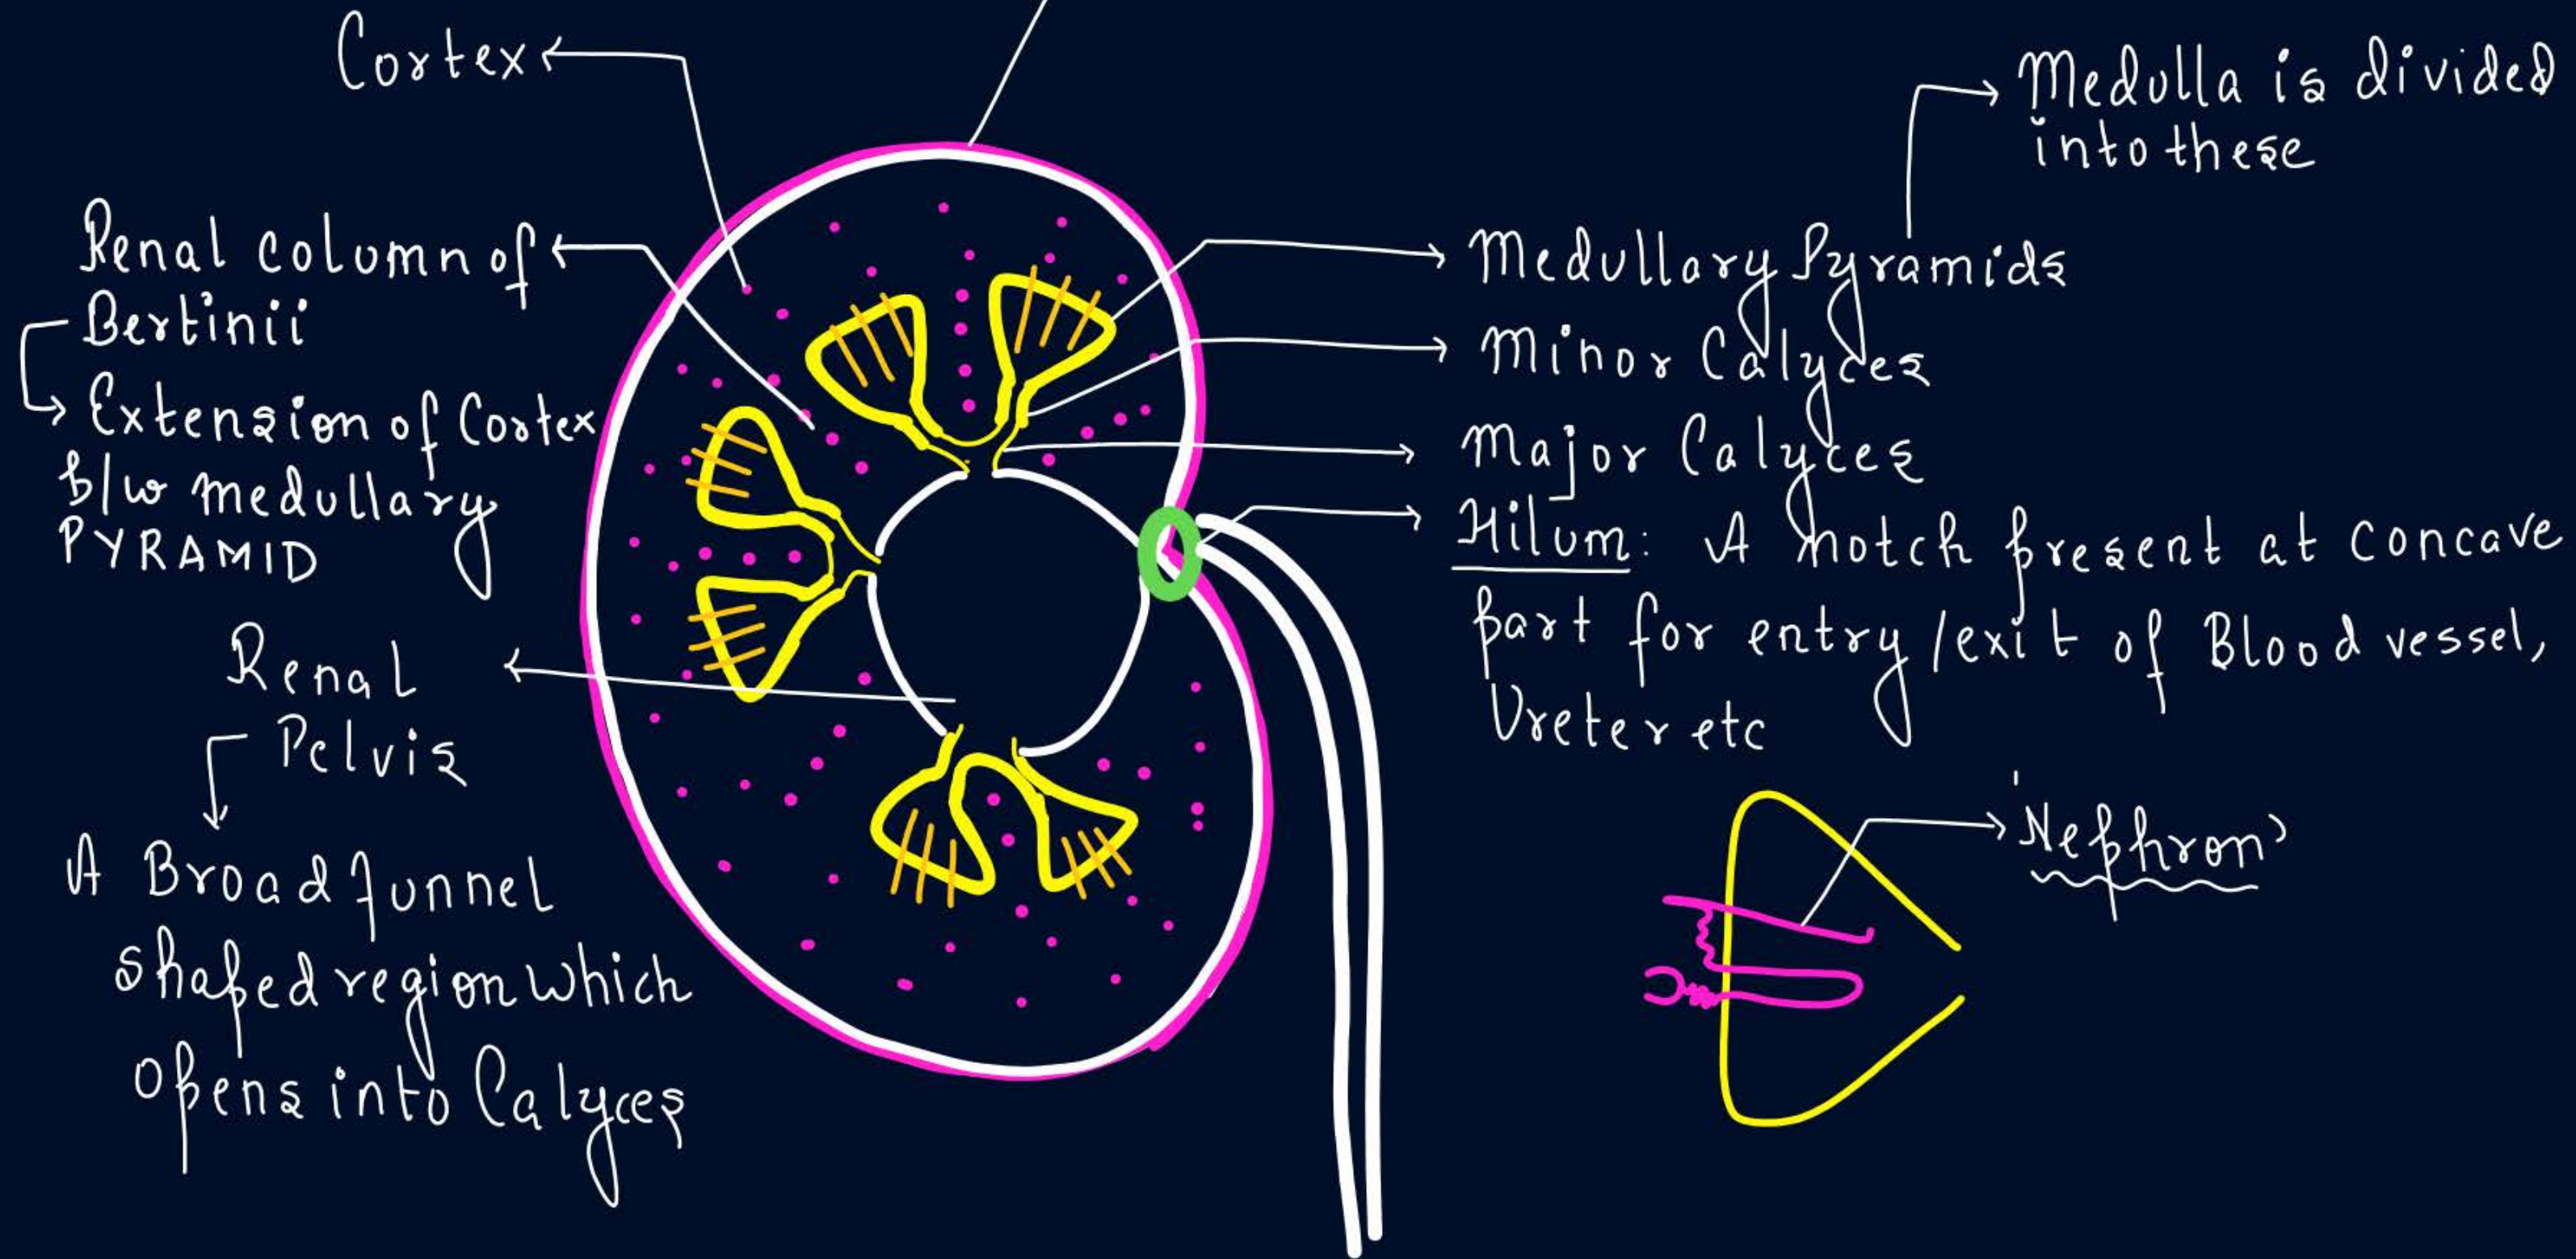 Cortex
Renal column of
Bertinii
Extension of Cortex
b/w medullary
PYRAMID
Renal
Pelvis
A Broad funnel
shaped region which
Opens into Calyces
Medulla is divided
into these
Medullary Pyramids
Minor Calyces
Major Calyces
Hilum: A notch present at concave
part for entry/exit of Blood vessel,
Ureter etc
'Nephron'